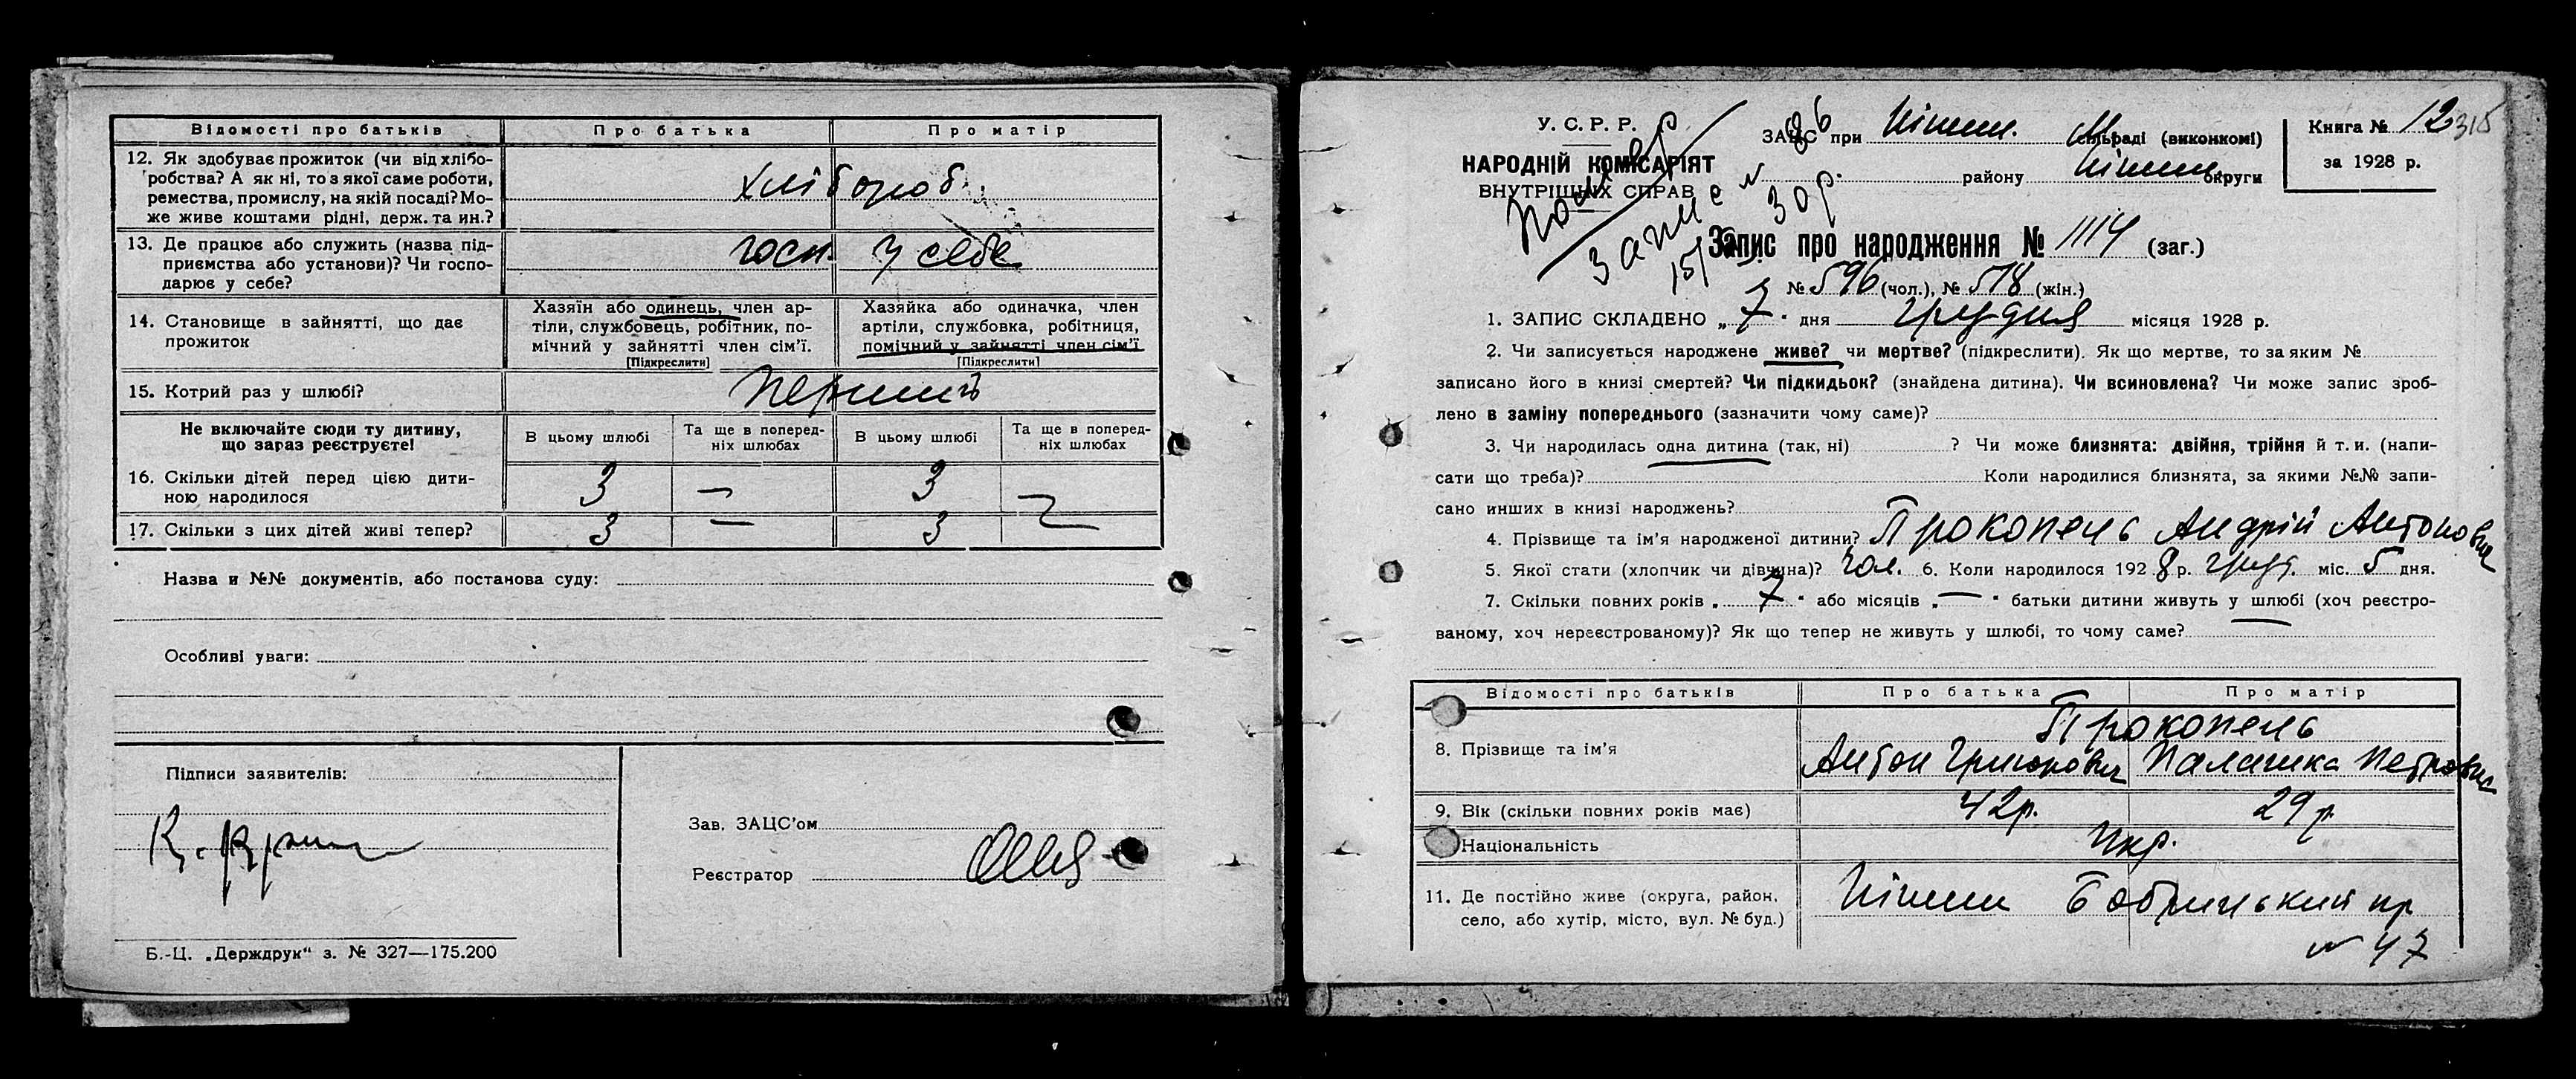 Відомості про батьків Про батька Про матір
12. Як здобуває прожиток (чи від хлібо-
робства? А як ні, то з якої саме роботи,
ремества, промислу, на якій посаді? Мо-
же живе коштами рідні, держ. та ин.?
хлібороб
13. Де працює або служить (назва під-
приємства або установи)? Чи госпо-
дарює у себе?
госп. у себе
14. Становище в зайнятті, що дає
прожиток
Хазяїн або одинець, член ар-
тіли, службовець, робітник, по-
мічний у зайнятті член сім'ї.
[Підкреслити]
Хазяйка або одиначка, член
артіли, службовка, робітниця,
помічний у зайнятті член сім'ї
[Підкреслити]
15. Котрий раз у шлюбі?
Не включайте сюди ту дитину,
що зараз реєструєте!
В цьому шлюбі
Та ще в поперед-
ніх шлюбах
В цьому шлюбі
Та ще в поперед-
ніх шлюбах
16. Скільки дітей перед цією дити-
ною народилося
3 — 3 —
17. Скільки з цих дітей живі тепер? 3 — 3 —
Назва и №№ документів, або постанова суду:
Особливі уваги:
Підписи заявителів:
Зав. ЗАЦС'ом
Реєстратор
Б.-Ц. „Держдрук“ з. № 327—175.200
У. С. Р. Р.
НАРОДНІЙ КОМІСАРІЯТ
ВНУТРІШНІХ СПРАВ
ЗАЦС при Ніжин. сільраді (виконкомі)
району Ніжин. округи
Книга № 12 315
за 1928 р.
Запис №
30 р.
Запис про народження № 1114 (заг.)
№ 596 (чол.), № 518 (жін.)
1. ЗАПИС СКЛАДЕНО „ 7 “ дня грудня місяця 1928 р.
2. Чи записується народжене живе? чи мертве? (підкреслити). Як що мертве, то за яким №
записано його в книзі смертей? Чи підкидьок? (знайдена дитина). Чи всиновлена? Чи може запис зроб-
лено в заміну попереднього (зазначити чому саме)?
3. Чи народилась одна дитина (так, ні) ? Чи може близнята: двійня, трійня й т. и. (напи-
сати що треба)? Коли народилися близнята, за якими №№ запи-
сано инших в книзі народжень?
4. Прізвище та ім'я народженої дитини? Прокопець Андрій Антонович
5. Якої стати (хлопчик чи дівчина)? Чол. 6. Коли народилося 1928 р. груд. міс. 5 дня.
7. Скільки повних років „ 7 “ або місяців „ — “ батьки дитини живуть у шлюбі (хоч реєстро-
ваному, хоч нереєстрованому)? Як що тепер не живуть у шлюбі, то чому саме?
Відомості про батьків Про батька Про матір
8. Прізвище та ім'я
Прокопець
Антон Григорович Палажка Петровна
9. Вік (скільки повних років має) 42 р. 29 р.
Національність Укр.
11. Де постійно живе (округа, район,
село, або хутір, місто, вул. № буд.)
Ніжин
№ 47